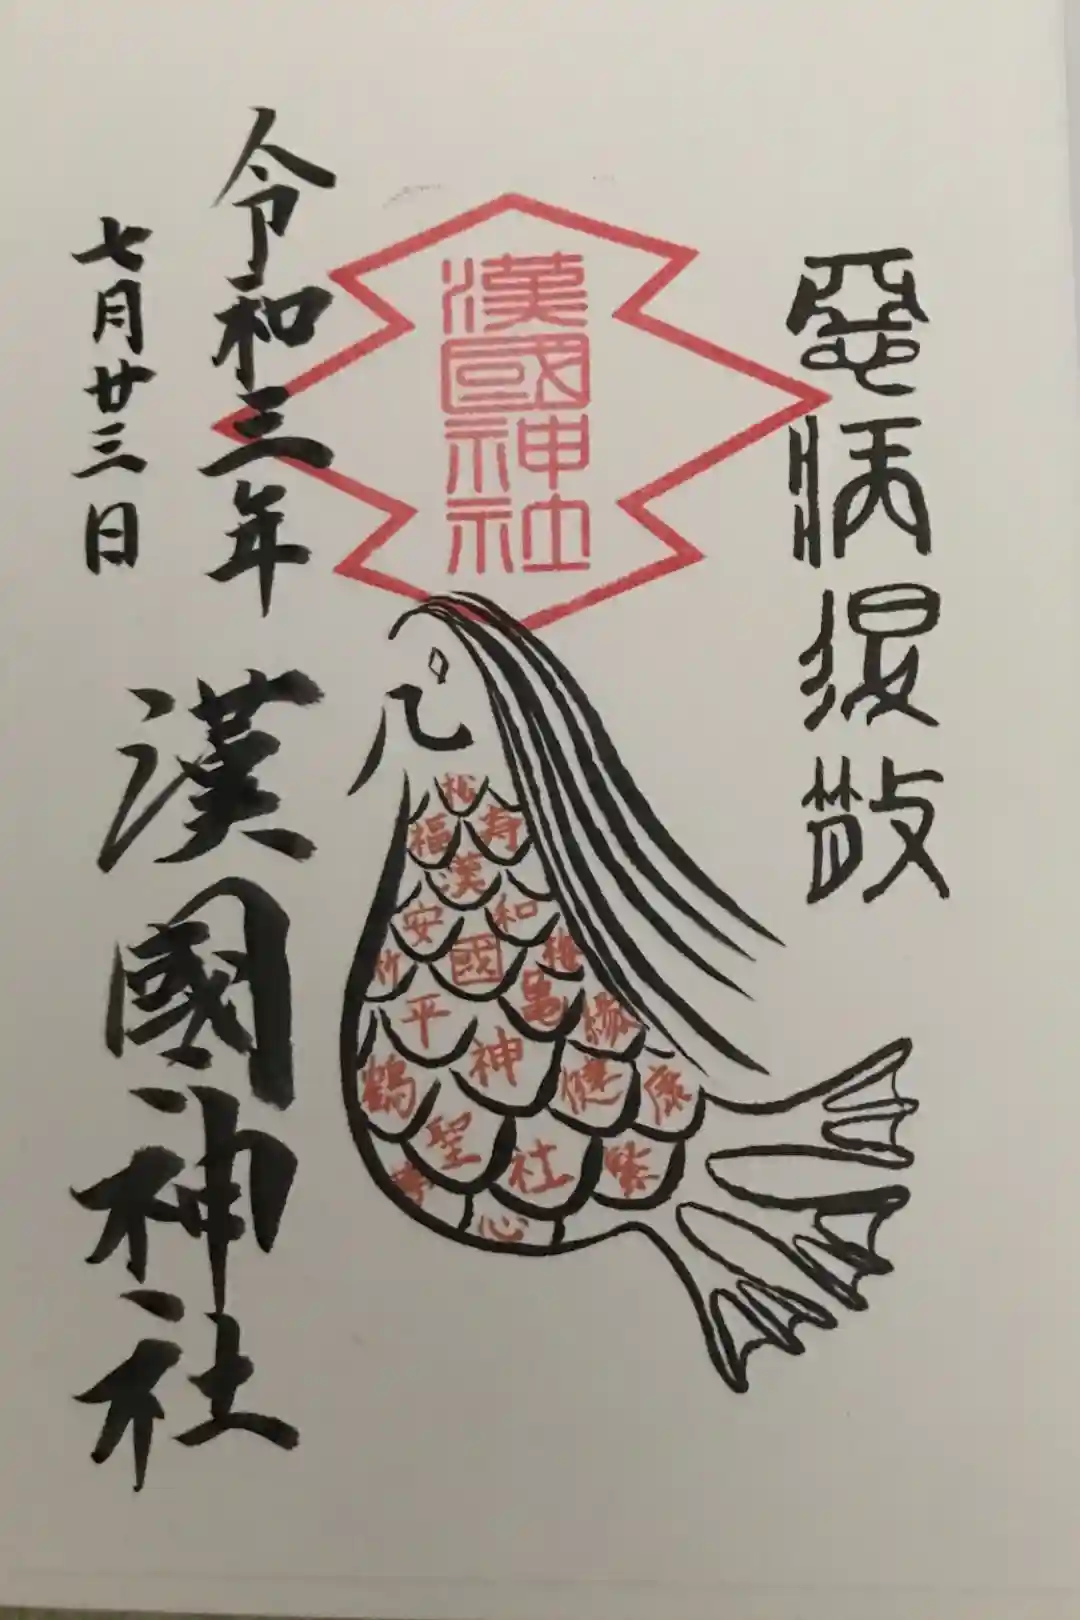 悪病退散
漢國神社
松
福
寿
漢
安
和
國
竹
平
亀
縁
神
鶴
健
康
聖
社
繁
心
令和三年
七月廿三日
漢國神社